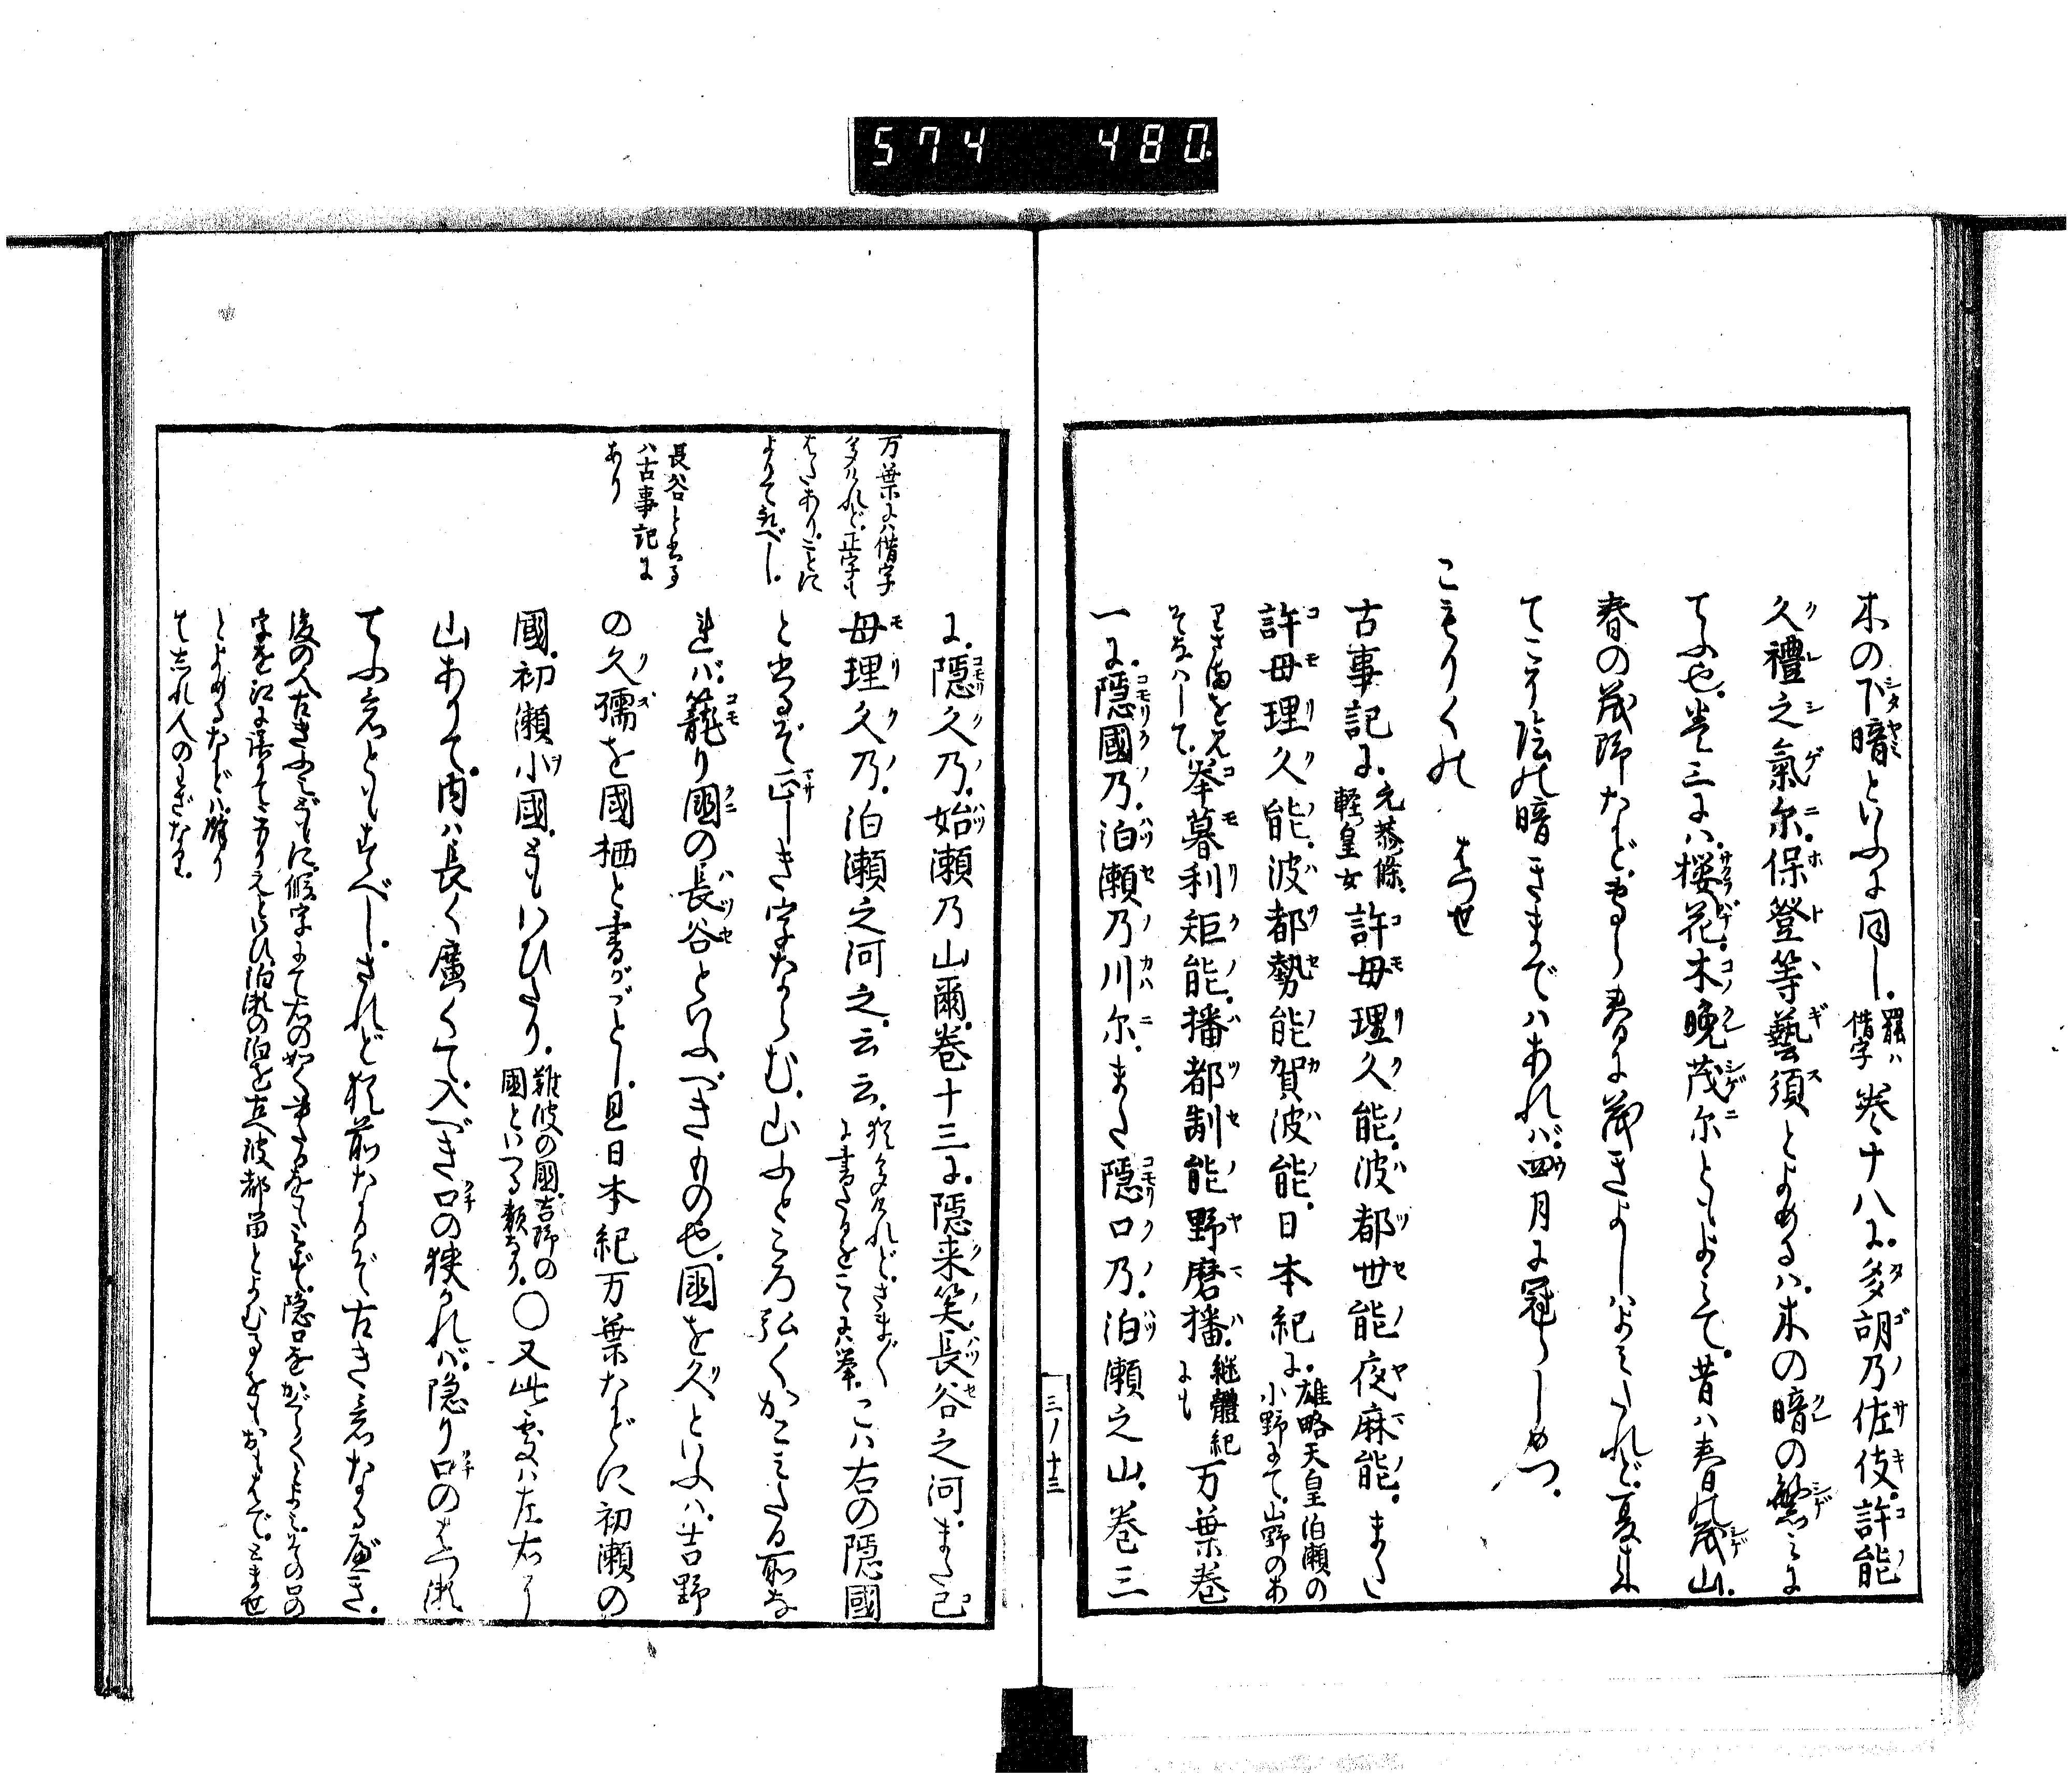 574 480
木の下暗といふに同じ。羅ハ借字 巻十八に。多胡乃佐伎。許能
久禮之氣尓。保登等藝須とよめるハ。木の暗の繁みに
てふ也。巻三にハ。桜花。木晩茂尓ともよみて。昔ハ春の茂山。
春の茂野などもあり。春に茂きよしハよみたれど。夏来
てこそ陰の暗きまでハあれバ。四月に冠らしめつ。
こもりくの はつせ
古事記に。允恭條。軽皇女 許母理久能。波都世能夜麻能。また
許母理久能。波都勢能賀波能。日本紀に。雄略天皇泊瀬の小野にて。山野のあ
りさまをみそなハして。挙暮利矩能。播都制能野磨播。継體紀にも 万葉巻
一に。隠國乃。泊瀬乃川尓。また隠口乃。泊瀬之山。巻三
三ノ十三
に。隠久乃。始瀬乃山爾。巻十三に。隠来笑長谷之河。また己
母理久乃。泊瀬之河之。云云。猶多けれど。さまざまに書たるをここに挙。こハ右の隠國
と書るぞ正しき字ならむ。山ふところ弘くかこみたる所な
れバ。籠り國の長谷といふべきもの也。國を久といふハ。吉野
の久孺を國栖と書がごとし。且日本紀万葉などに初瀬の
國。初瀬小國。ともいひたり。難波の國。吉野の國といへる類なり。〇又此處ハ左右に
山ありて。内ハ長く廣くて。入べき口の狭けれバ。隠り口のはつ瀬
てふ意ともすべし。されど猶前なるぞ古き意なるべき。
後の人古きふみどもに假字にて右の如く書たるをもみず。隠口をかくらくとよみ。その口の
字を江に誤りてこもりえといひ。泊瀬の泊を古へ波都留とよむをもおもはで。とませ
とよめるなどハ。餘り
て志れ人のわざなり。
万葉にハ借字
多けれど。正字も
またあり。ことに
よりて知べし。
長谷と書る
ハ古事記に
あり